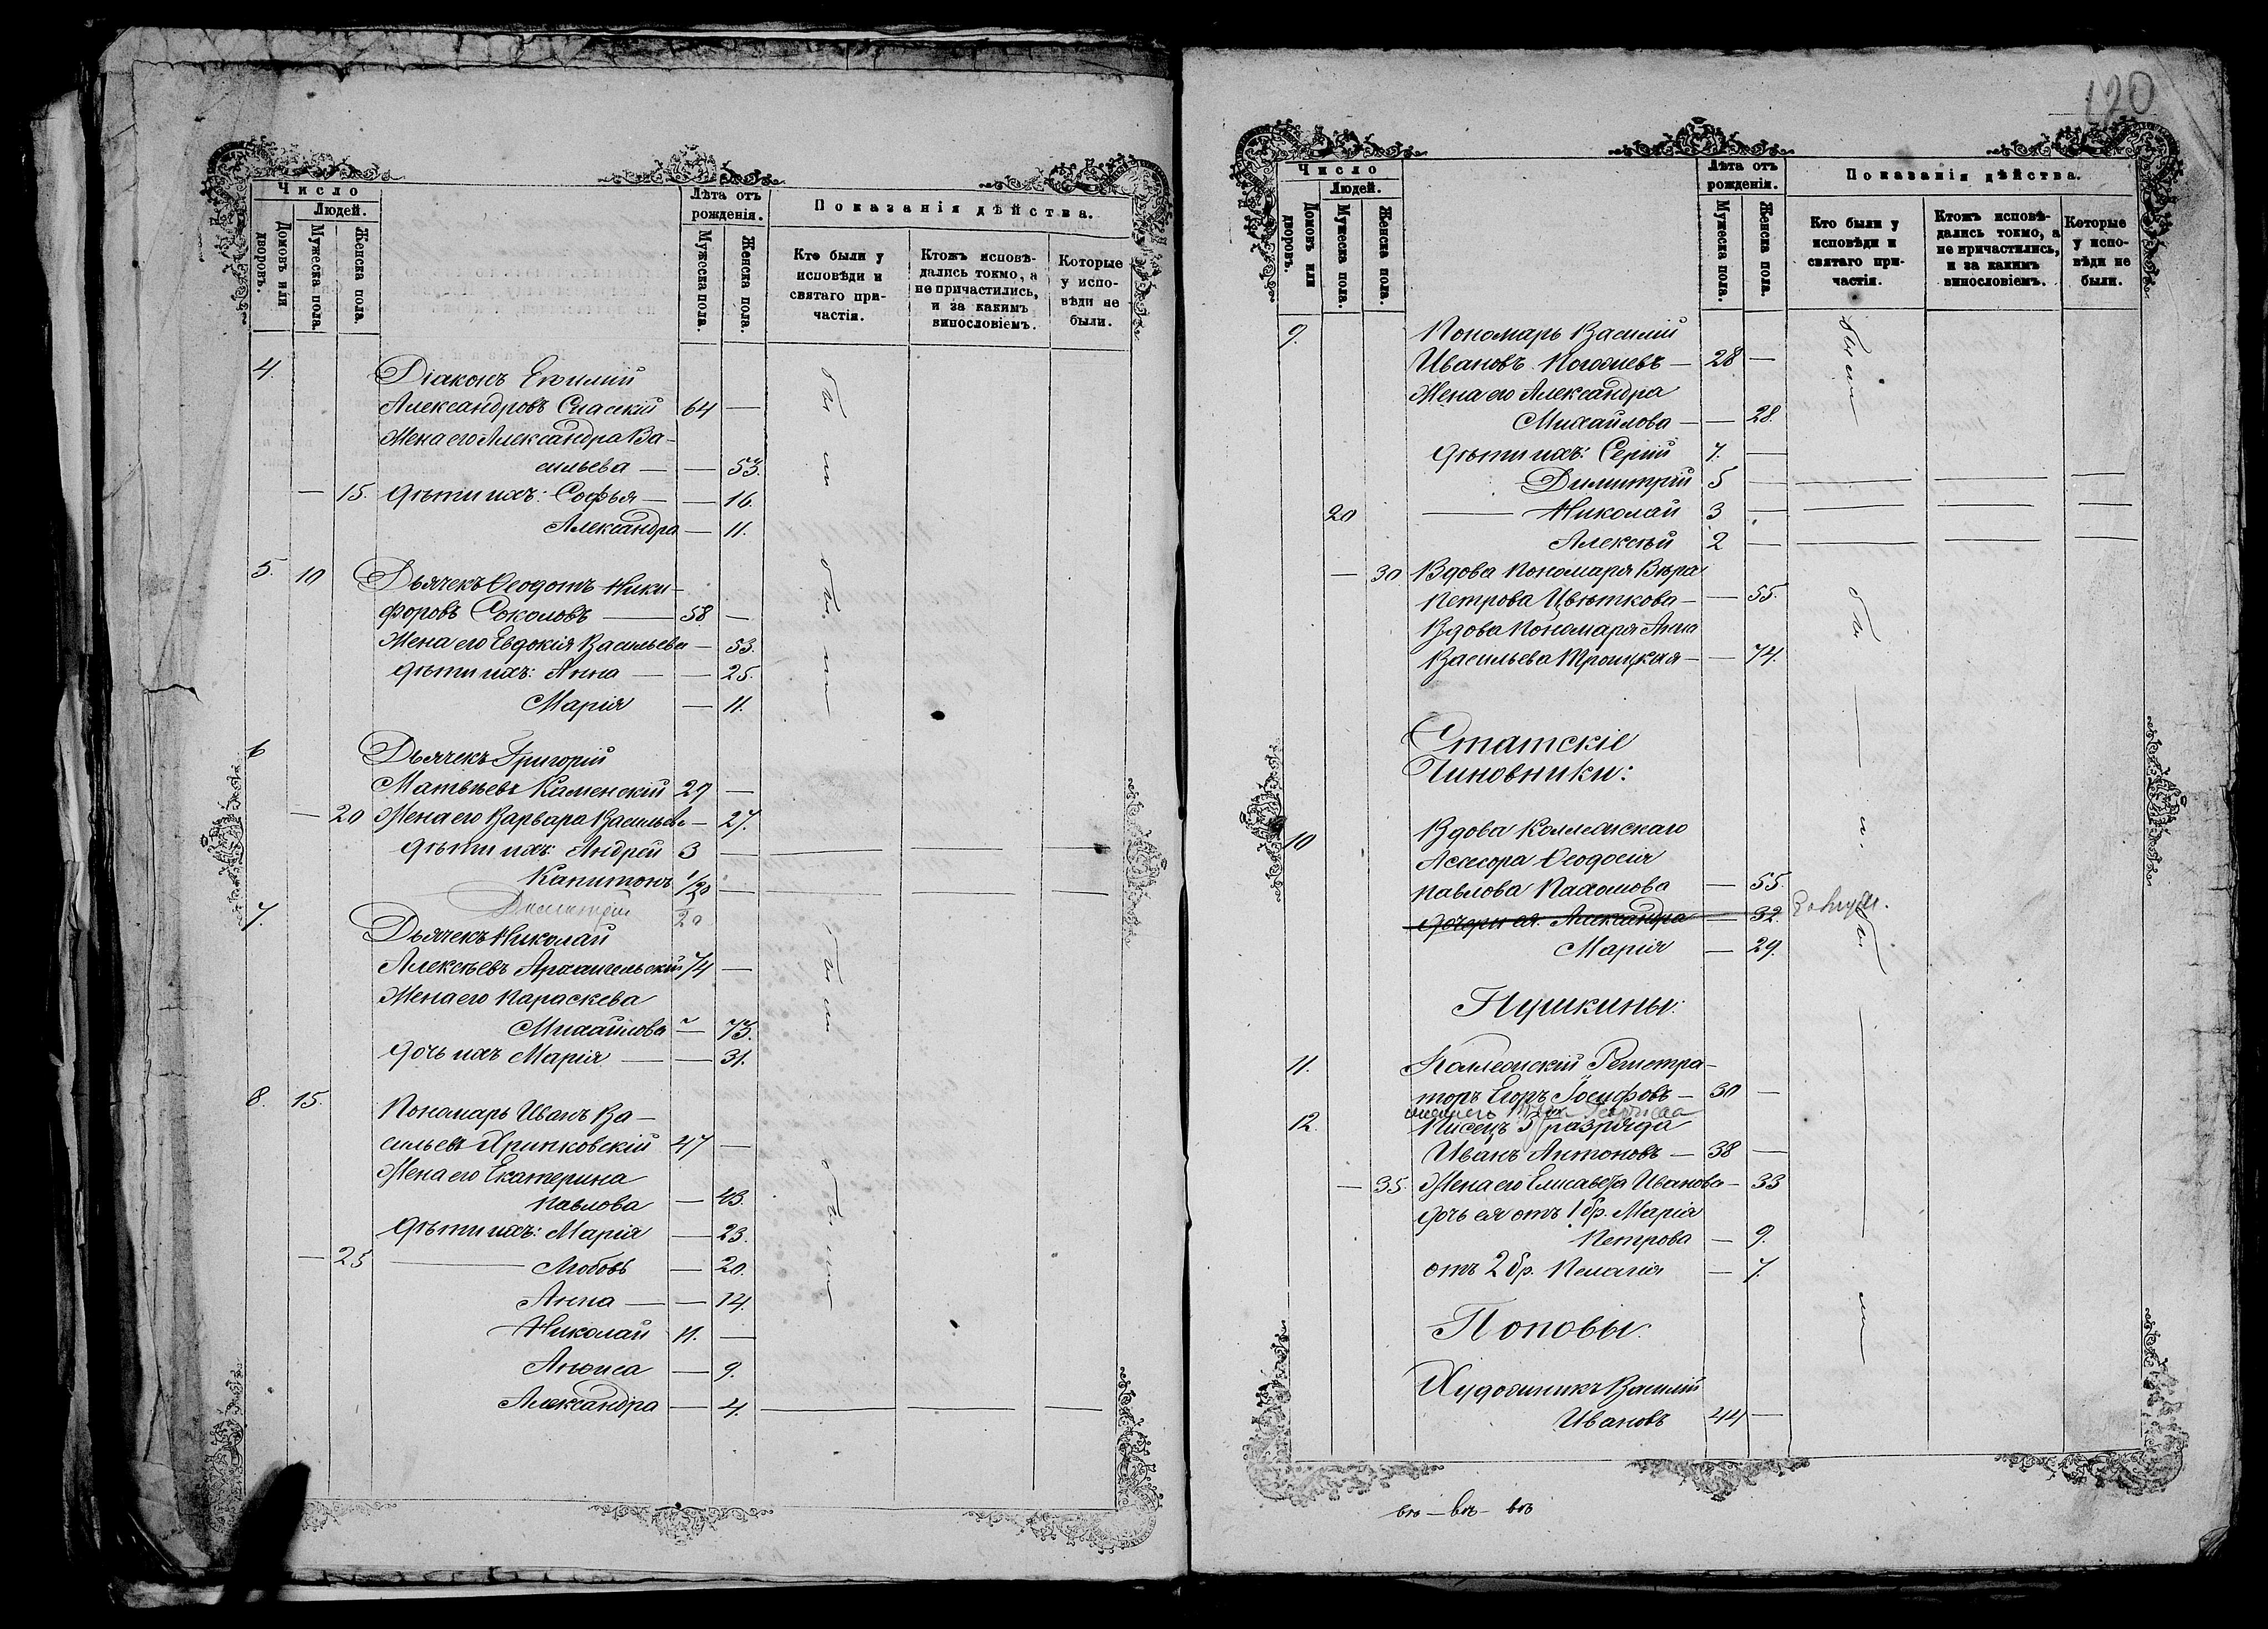 Число
Людей.
Домовъ или дворовъ.
Мужеска пола.
Женска пола.
Лѣта отъ рожденія.
Мужеска пола.
Женска пола.
Показанія дѣйства.
Кто были у исповѣди и святаго причастія.
Ктожъ исповѣдались токмо, а не причастились, и за какимъ винословіемъ.
Которые у исповѣди не были.
4. Діаконъ Евѳимій
Александровъ Спаскій 64 —
Жена его Александра Ва-
сильева — — 53.
— 15. Дѣти ихъ: Софья — — 16.
Александра — 11.
5. 10 Дьячекъ Ѳеодотъ Ники-
форовъ Соколовъ — 58 —
Жена его Евдокія Васильева — 53.
Дѣти ихъ: Анна — — 25.
Марія — 11.
6 Дьячекъ Григорій
Матвѣевъ Каменскій 29 —
— 20 Жена его Варвара Васильева — 27.
Дѣти ихъ: Андрей 3 — — — —
Капитонъ 1/20 — — — —
Димитрій 20
7. Дьячекъ Николай
Алексѣевъ Архангельскій 74 —
Жена его Параскева
Михайлова — 73.
Дочь ихъ Марія — — 31.
8. 15. Пономарь Иванъ Ва-
сильевъ Хринковскій 47 —
Жена его Екатерина
Павлова — 43.
Дѣти ихъ: Марія — 23.
— 25 — Любовь — 20.
Анна — — 14.
Николай 11. —
Анѳиса — 9.
Александра — 4. — — —
120
Число
Людей.
Домовъ или дворовъ.
Мужеска пола.
Женска пола.
Лѣта отъ рожденія.
Мужеска пола.
Женска пола.
Показанія дѣйства.
Кто были у исповѣди и святаго причастія.
Ктожъ исповѣдались токмо, а не причастились, и за какимъ винословіемъ.
Которые у исповѣди не были.
9. Пономарь Василій
Ивановъ — 28 —
Жена его Александра
Михайлова — — 28.
Дѣти ихъ: Сергій 7. —
Димитрій 5 — — — —
20 — Николай 3 — — — —
Алексѣй 2 — — — —
— 30 Вдова Пономаря Вѣра
Петрова Цвѣткова — — 55.
Вдова Пономаря Анна
Васильева Троицкая — — 74.
Статскіе
Чиновники:
10 Вдова Коллежскаго
Асессора Ѳеодосія
Павлова Пахомова — 55.
Дочери ея: Александра — 32.
Марія — 29.
Пушкины:
11. Коллежскій Регистра-
торъ Егоръ Іосифовъ — 30 —
12. Писецъ 3 разряда
Иванъ Антоновъ — 38 —
— 35. Жена его Елисавета Иванова — 33
Дочь ея отъ 1 бр. Марія
Петрова — 9.
отъ 2 бр. Пелагія — 7.
Поповы.
Художникъ Василій
Ивановъ 44 —